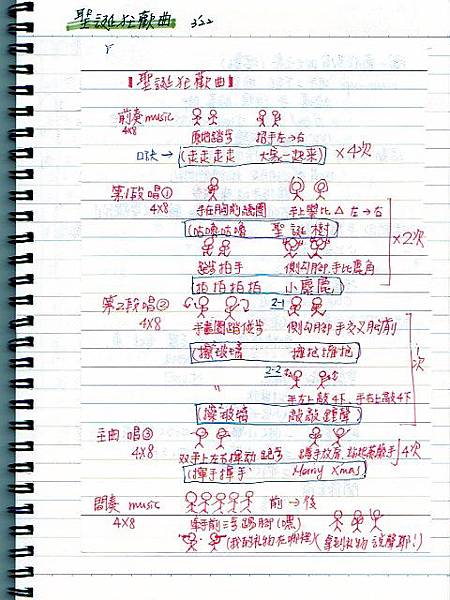 聖誕狂歡曲 352
【聖誕狂歡曲】
前奏 music
4X8
原地踏步 招手左→右
口訣→(走走走走 大家一起來) ×4次
第1段唱①
4X8
手在胸前繞圈 手上舉比△左→右
(咕嚕咕嚕 聖誕樹)
踏步拍手 側勾腳.手比鹿角
(拍拍拍拍 小麋鹿)
×2次
第2段唱②
4X8
2-1
手畫圈踏併步 側勾腳 手交叉胸前
(擦玻璃 擁抱擁抱)
1次
2-2
〃
手左上敲4下、手右上敲4下
(擦玻璃 敲敲鐘聲)
主曲 唱③
4X8
双手上左右揮動 踏步
(揮手揮手 Merry Xmas)
4次
間奏 music
4X8
前→後
(我的礼物在哪裡)(拿到礼物 說聲耶!)